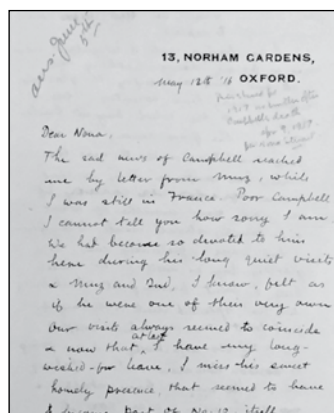 ans. June
5th
13, NORHAM GARDENS,
May 12th '16 OXFORD.
1917 months after
Campbell's death
Apr 9, 1917
Dear Nona,
The sad news of Campbell reached
me by letter from Muz, while
I was still in France. Poor Campbell
I cannot tell you how sorry I am
We had become so devoted to him
here during his long quiet visits
& Muz and Dad, I know, felt as
if he were one of their very own
Our visits always seemed to coincide
& now that at last I have my long-
wished-for leave, I miss his sweet
homely presence, that seemed to have
& become part of No. 13 itself